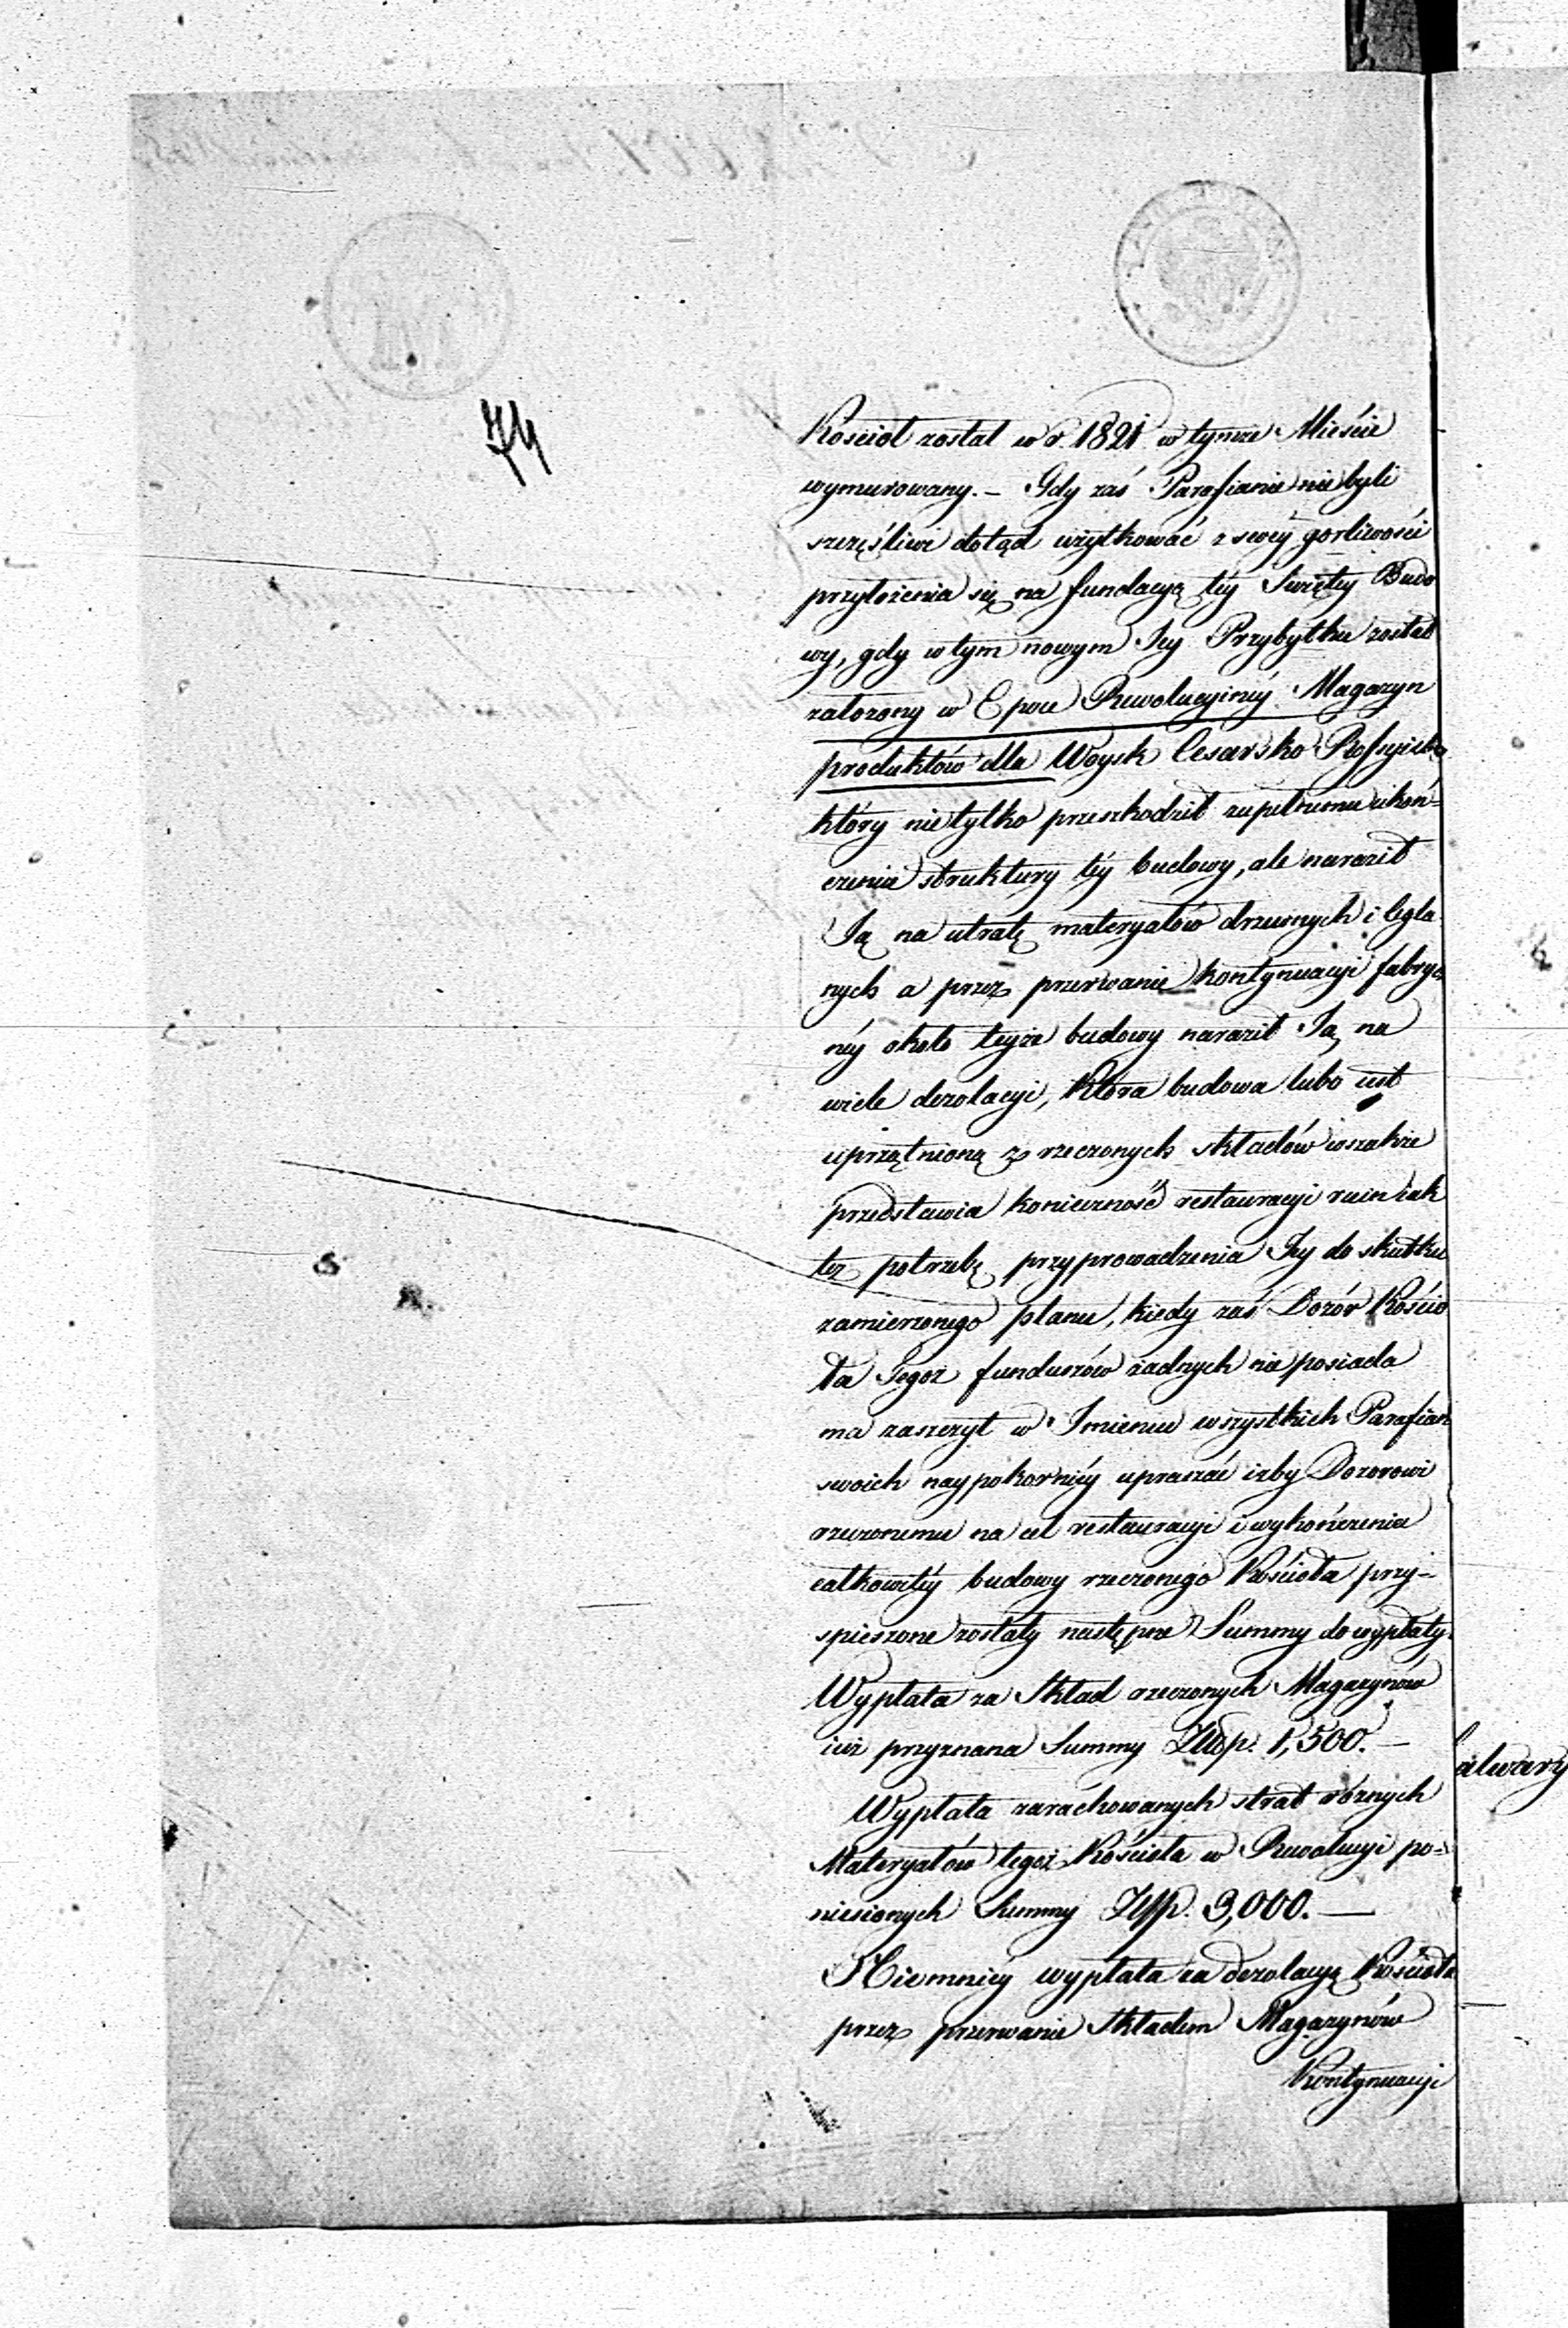 74
Kościoł został w r. 1821 w tymże Mieście
wymurowany. – Gdy zaś Parafianie nie byli
szczęśliwi dotąd użytkować z swey gorliwości
przyłożenia się na fundacyą tey Swiętey Budo
wy, gdy w tym nowym Jey Przybytku został
założony w Epoce Rewolucyiney Magazyn
produktów dla Woysk Cesarsko Rossyisk
który nie tylko przeszkodził zupełnemu ukoń-
czenia struktury téy budowy, ale naraził
Ją na utratę materyałów drzewnych i Cegla
nych a przez przerwanie kontynuacyi fabrycz
néy około teyże budowy naraził Ją na
wiele dezolacyi, Która budowa lubo iest
uprzątnioną z rzeczonych składów wszakże
przedstawia konieczność restauracyi ruin iak
też potrzebę przyprowadzenia Jey do skutku
zamierzonego planu, kiedy zaś Dozór Kościo
ła Tegoż funduszów żadnych nie posiada
ma zaszczyt w Imieniu wszystkich Parafian
swoich naypokorniéy upraszać iżby Dozorowi
rzeczonemu na cel restauracyi i wykończenia
całkowitéy budowy rzeczonego Kościoła przy-
spieszone zostały następne Summy do wypłaty.
Wypłata za Skład rzeczonych Magazynów
iuż przyznana Summy Złp. 1,500. —
Wypłata zarachowanych strat różnych
Materyałów tegoż Kościoła w Rewolucyi po-
niesionych Summy Złp. 3,000. —
Niemniey wypłata za dezolacyą Kościoła
przez przerwanie Składem Magazynów
Kontynuacyi
alwary